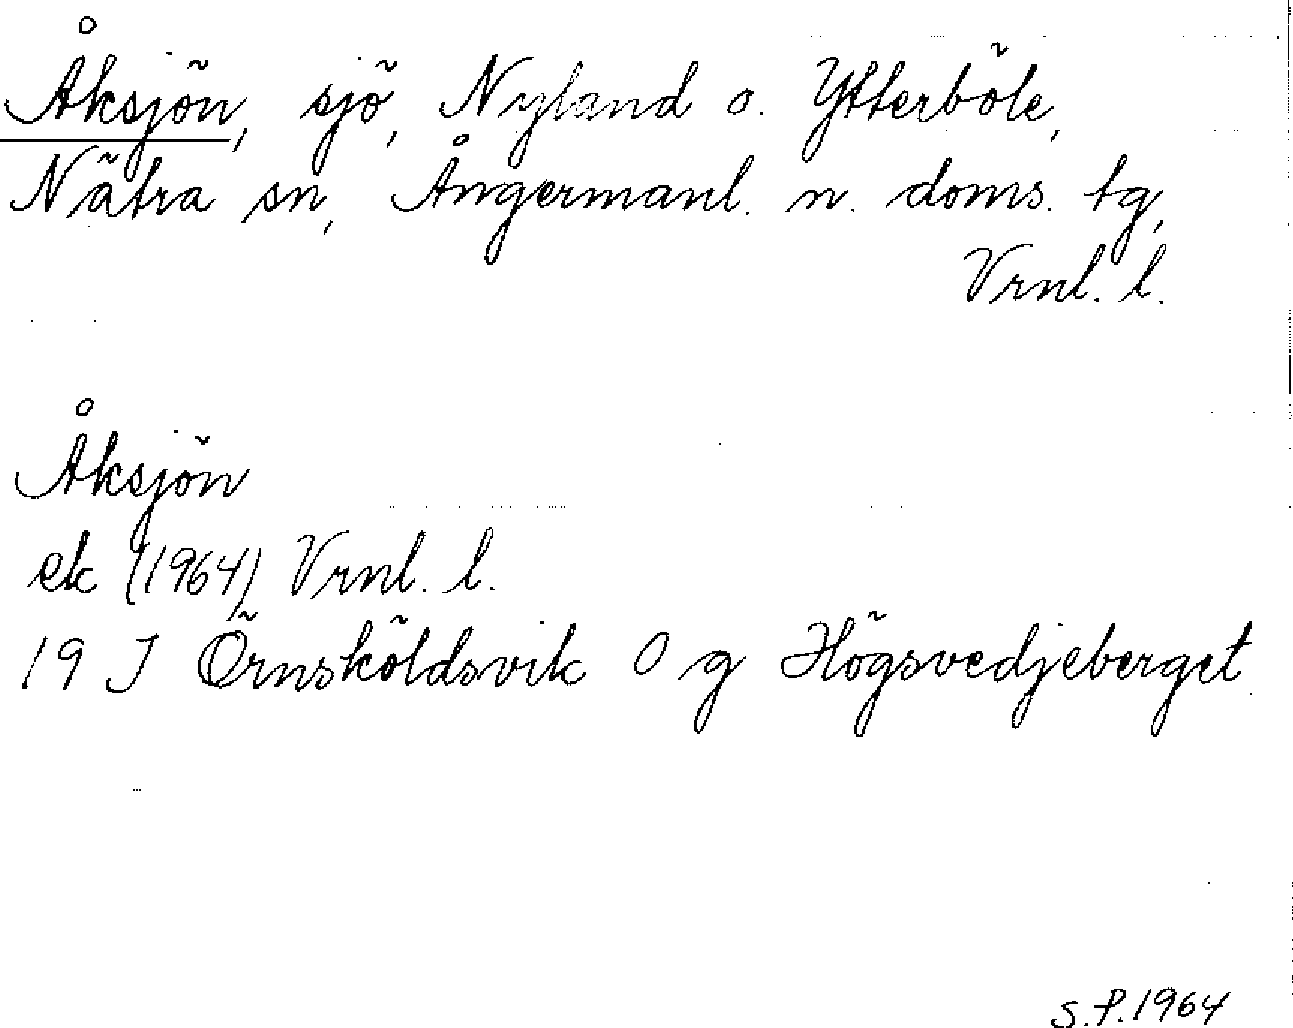 Åksjön, sjö, Nyland o. Ytterböle,
Nätra sn, Ångermanl. n. doms. tg,
Vrnl. l.
Åksjön
ek (1964) Vrnl. l.
19 J Örnsköldsvik O g Högsvedjeberget
S.P. 1964